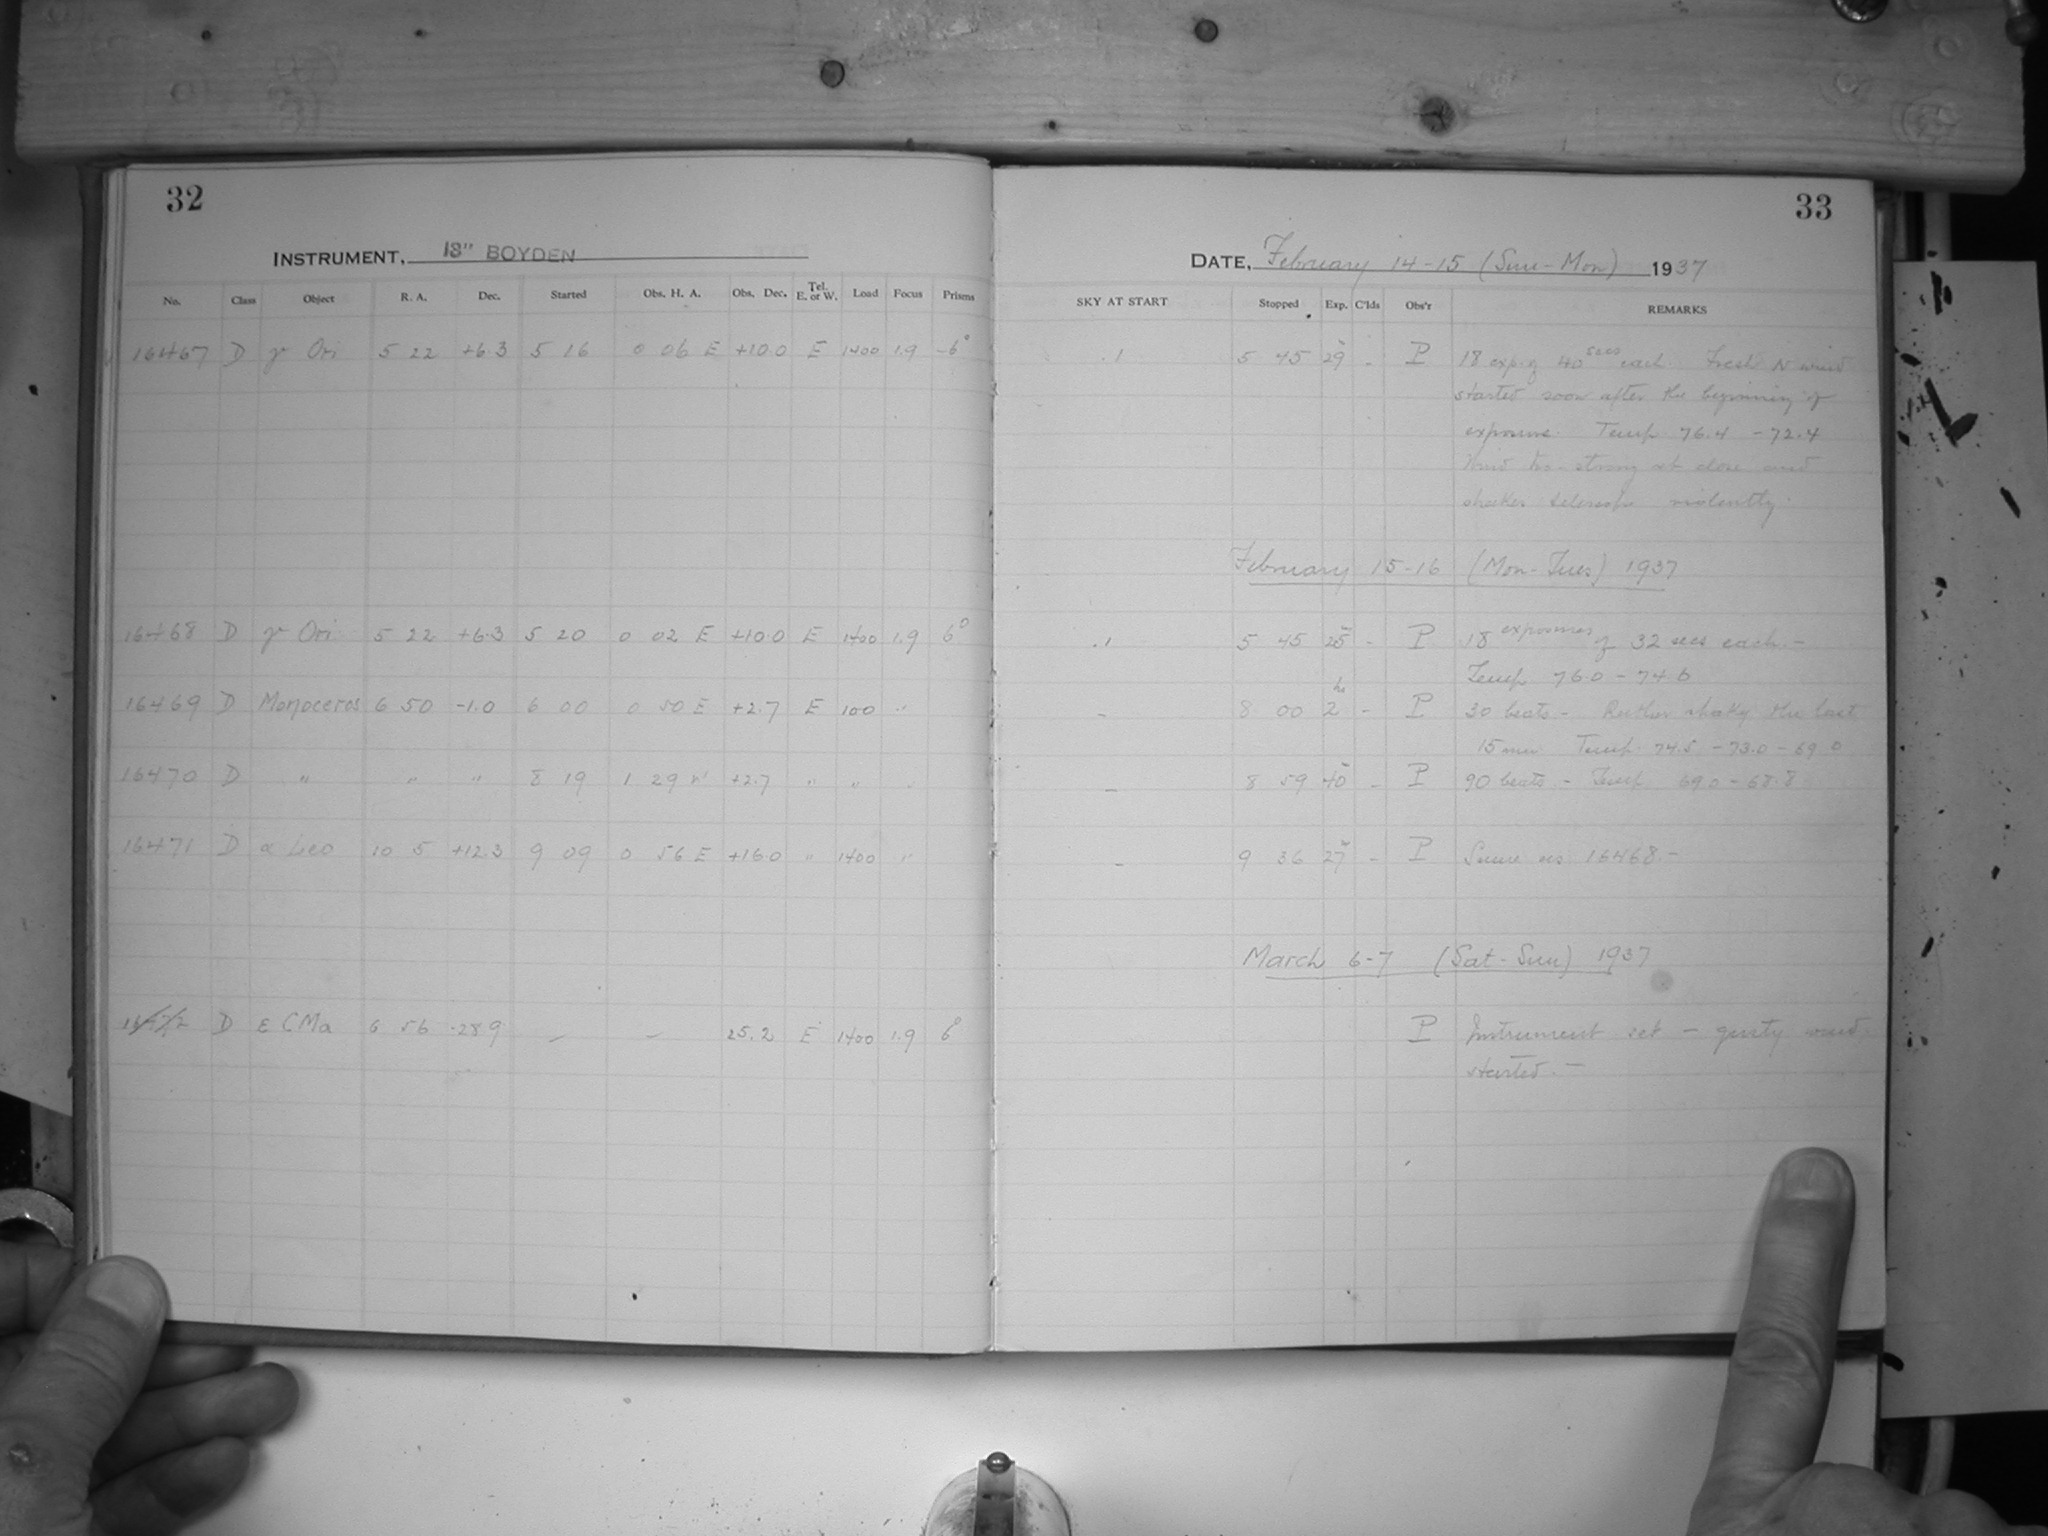 32
INSTRUMENT, 13" BOYDEN
No. Class Object R. A. Dec. Started Obs. H. A. Obs. Dec. Tel. E. or W. Load Focus Prisms
16467 D γ Ori 5 22 +6.3 5 16 0 06 E +10.0 E 1400 1.9 6°
16468 D γ Ori 5 22 +6.3 5 20 0 02 E +10.0 E 1400 1.9 6°
16469 D Monoceros 6 50 -1.0 6 00 0 50 E +2.7 E 100 "
16470 D " " " 8 19 1 29 W +2.7 " " "
16471 D α Leo 10 5 +12.3 9 09 0 56 E +16.0 " 1400 "
16472 D ε CMa 6 56 -28.9 - - 25.2 E 1400 1.9 6°
33
DATE, February 14-15 (Sun-Mon) 1937
SKY AT START Stopped Exp. C'lds Obs'r REMARKS
.1 5 45 29 - P 18 exp. of 40 secs each. Fresh N wind
started soon after the beginning of
exposure. Temp 76.4 - 72.4
Wind too strong at close and
shakes telescope violently.
February 15-16 (Mon-Tues) 1937
.1 5 45 25 - P 18 exposures of 32 secs each. -
Temp 76.0 - 74.6
- 8 00 2 h - P 30 beats - Rather shaky the last
15 min Temp 74.5 - 73.0 - 69.0
- 8 59 40 - P 90 beats - Temp 69.0 - 68.8
- 9 36 27 - P Same as 16468. -
March 6-7 (Sat-Sun) 1937
P Instrument set - gusty wind
started. -